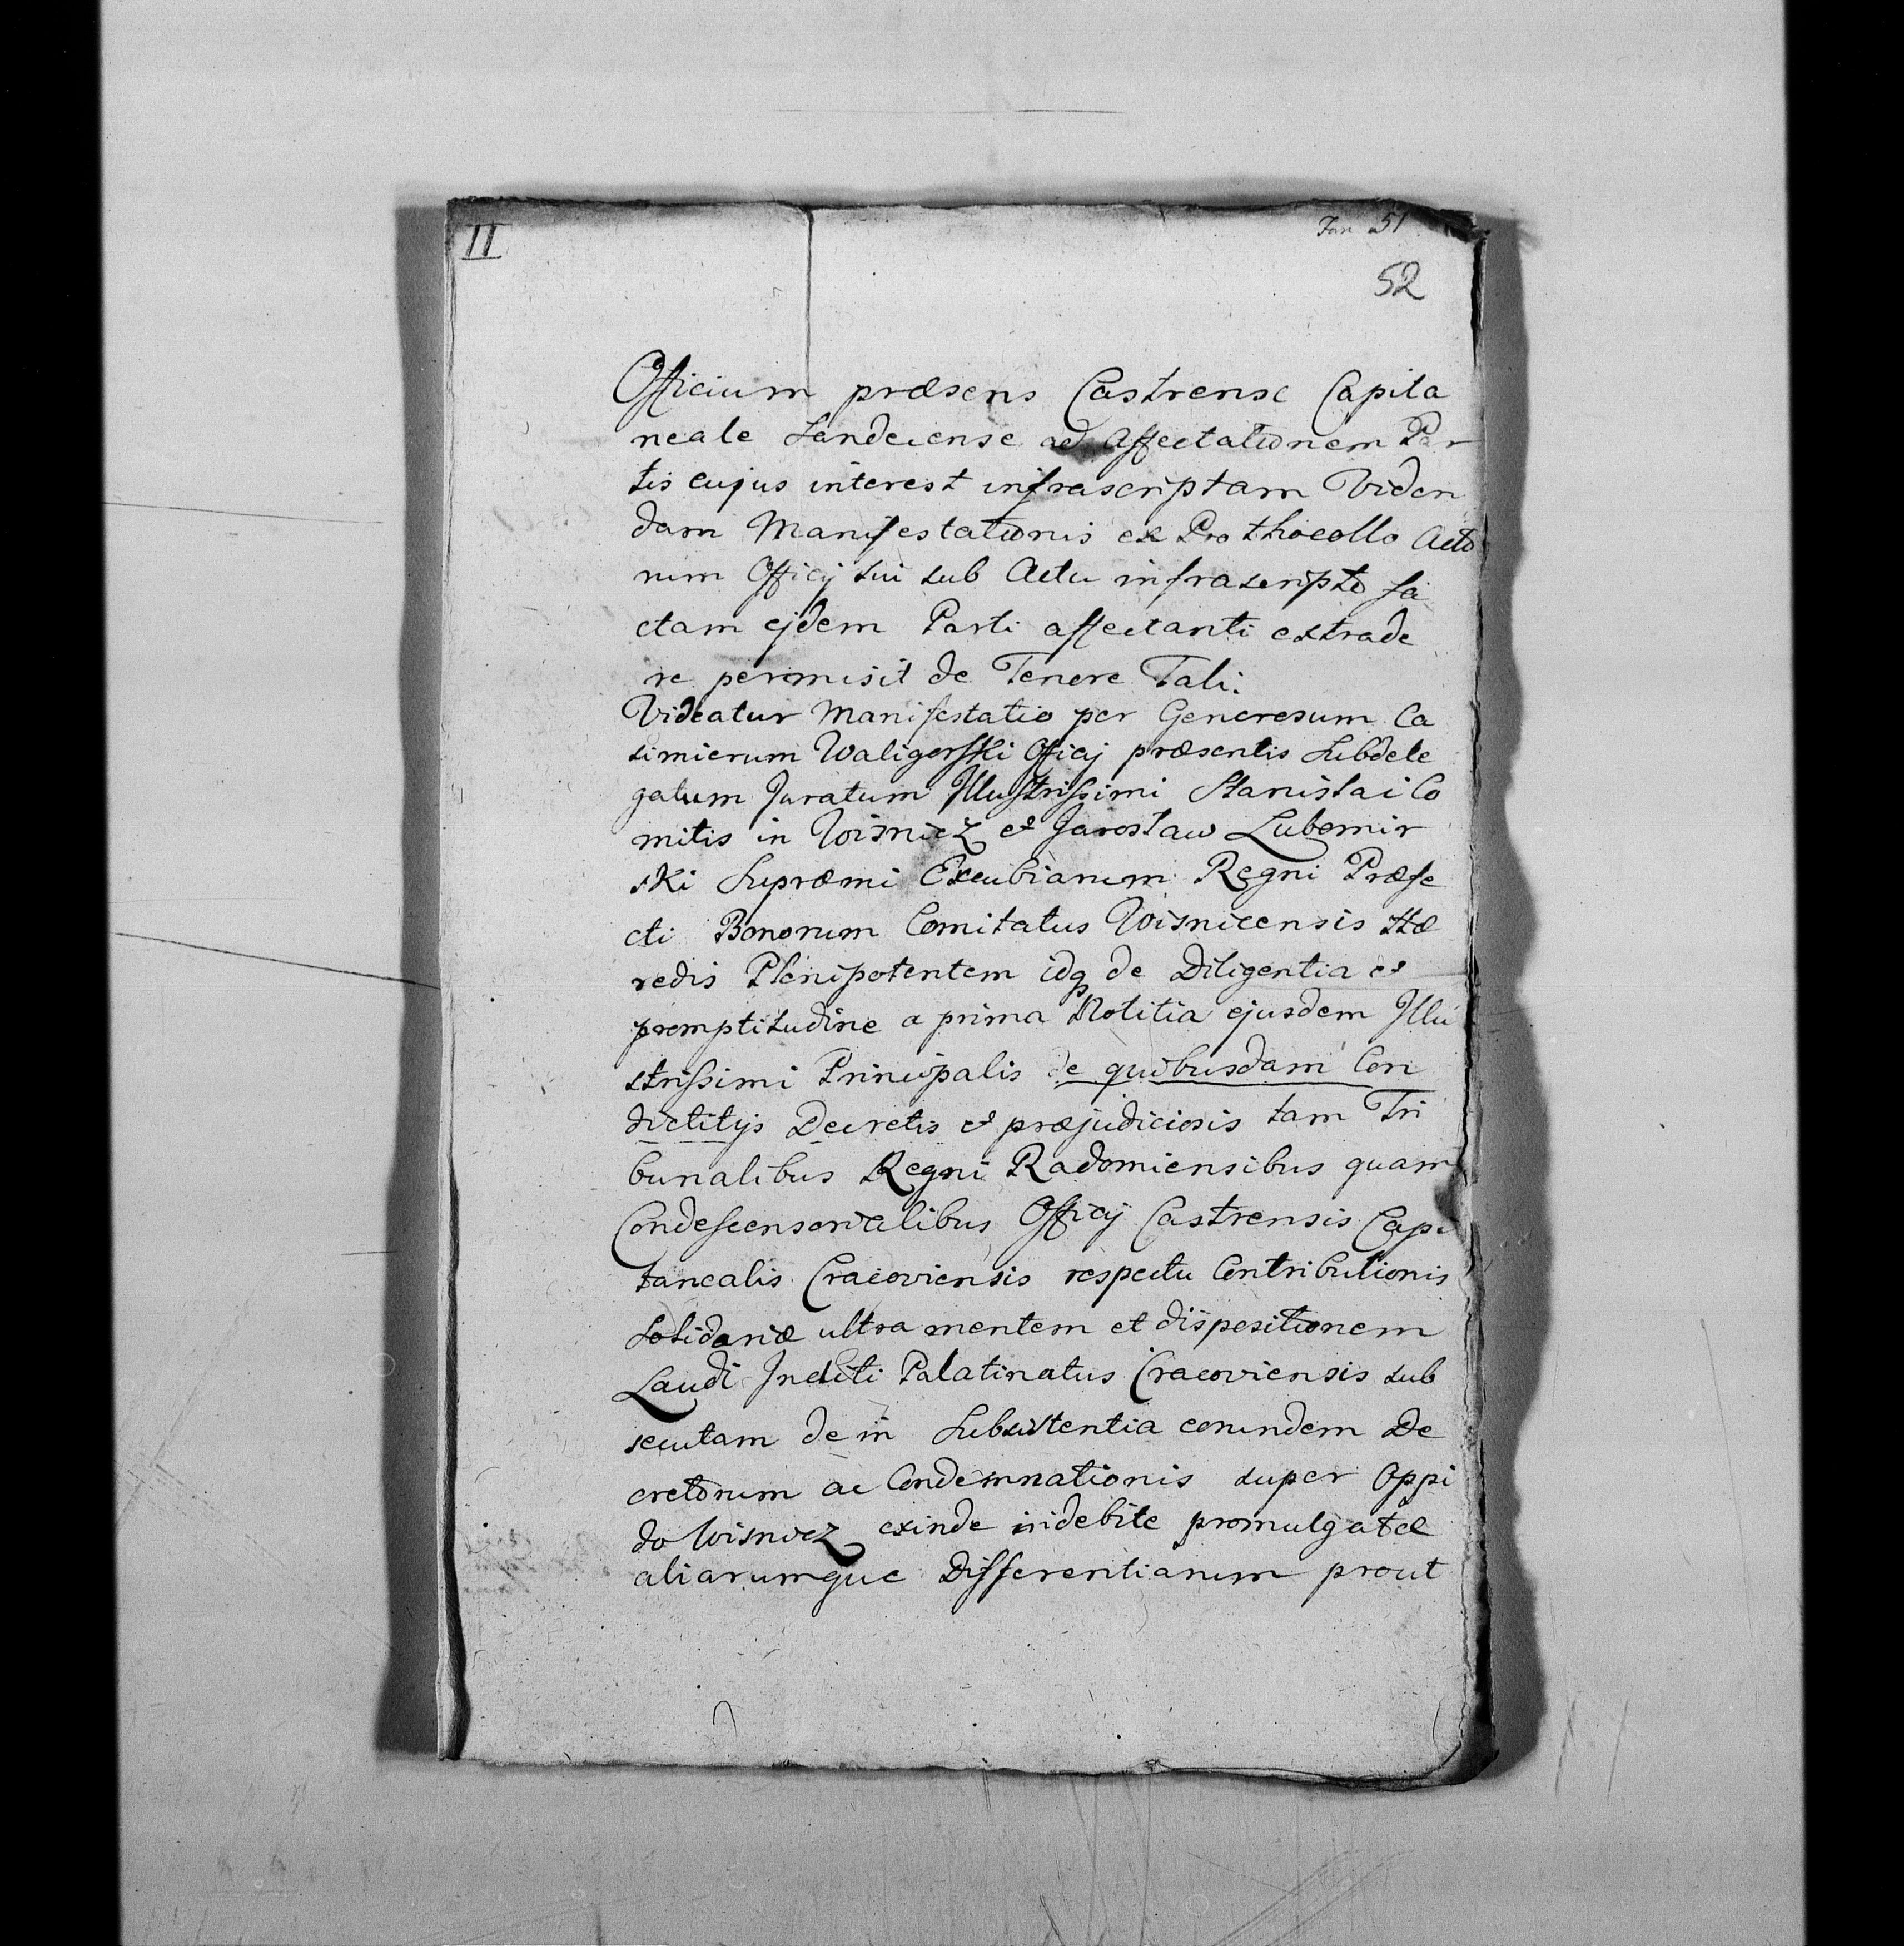 II
Fan 51
52
Officium præsens Castrense Capita
neale Sandecense ad Affectationem Par
tis cujus interest infrascriptam Viden
dam Manifestationis ex Prothocollo Acto
rum Officij sui sub Actu infrascripto fa
ctam ejdem Parti affectanti extrade
re permisit de Tenore Tali.
Videatur Manifestatio per Generosum Ca
simierum Waligorski Officij præsentis Subdele
gatum Juratum Illustrissimi Stanislai Co
mitis in Wisnicz et Jaroslaw Lubomir
ski Supræmi Excubiarum Regni Præfe
cti Bonorum Comitatus Wisnicensis Hæ
redis Plenipotentem idq de Diligentia et
promptitudine a prima Notitia ejusdem Illu
strissimi Principalis de quibusdam Con
dictitijs Decretis et præjudiciosis tam Tri
bunalibus Regni Radomiensibus quam
Condescensorialibus Officij Castrensis Capi
tanealis Cracoviensis respectu Contributionis
Solidariæ ultra mentem et dispositionem
Laudi Incliti Palatinatus Cracoviensis sub
secutam de in Subsistentia eorundem De
cretorum ac Condemnationis super Oppi
do Wisnicz exinde indebite promulgatæ
aliarumque Differentiarum prout